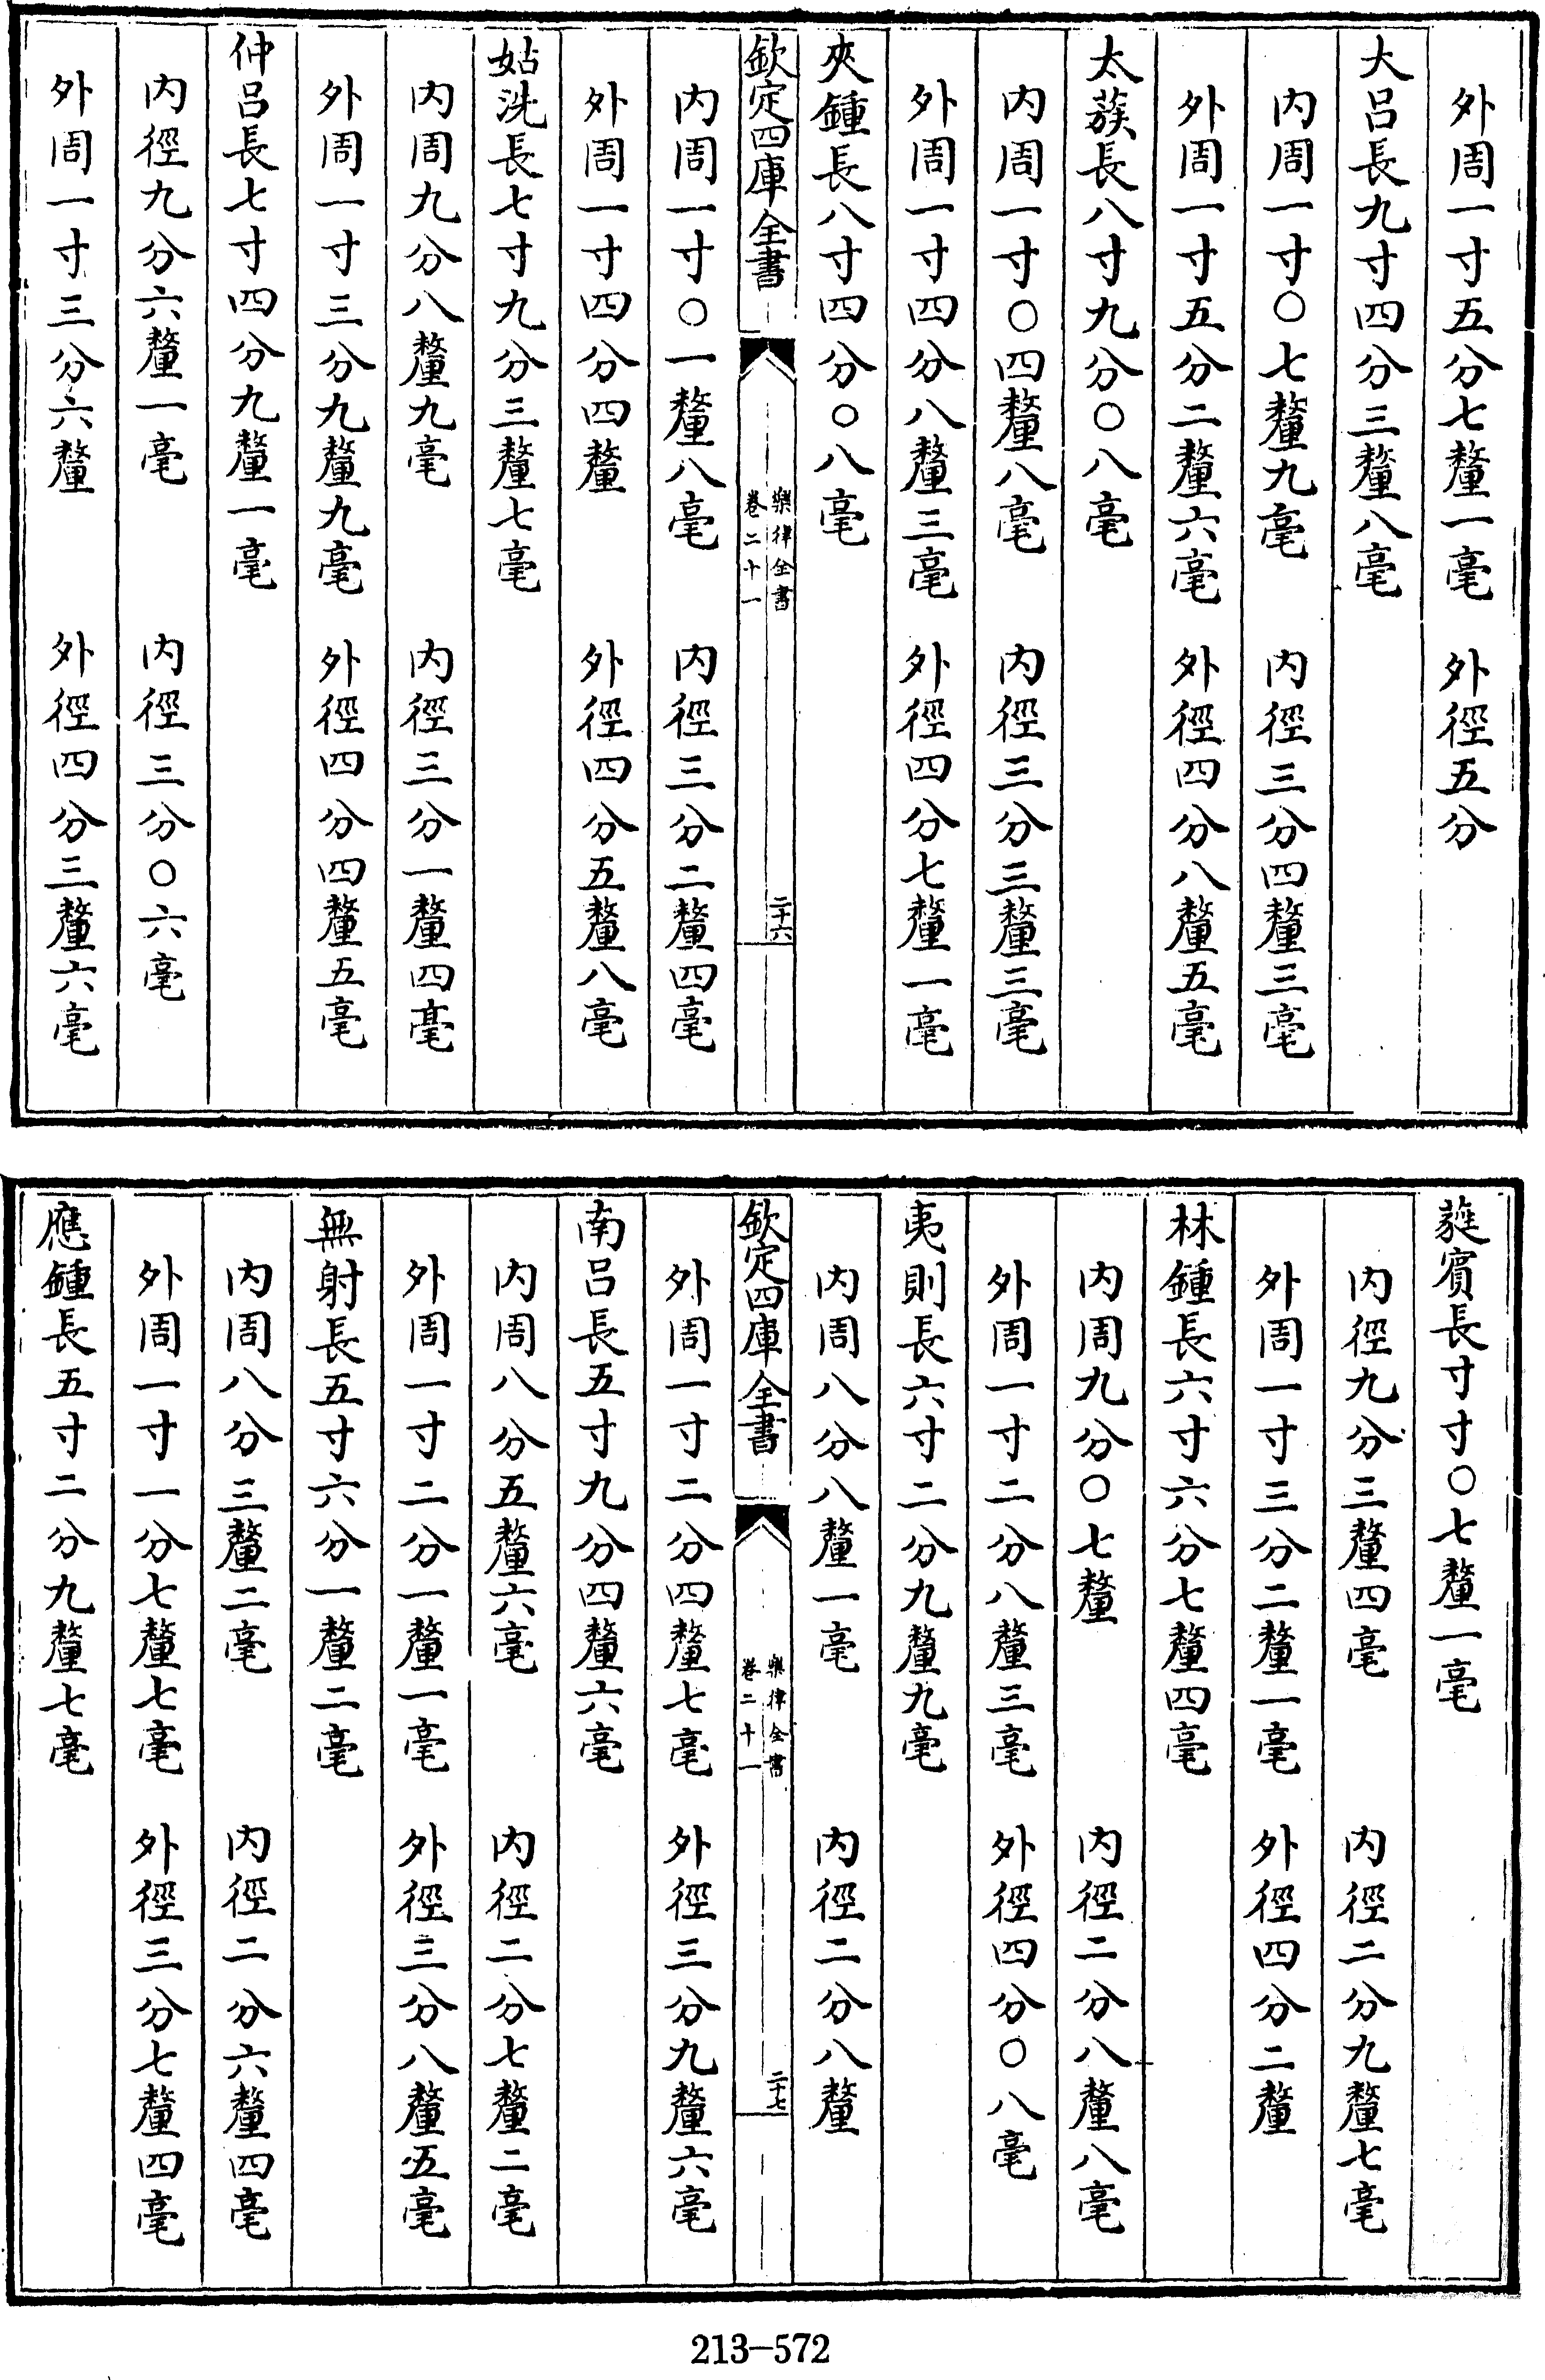 外周一寸五分七釐一毫　外徑五分
大呂長九寸四分三釐八毫
内周一寸〇七釐九毫　内徑三分四釐三毫
外周一寸五分二釐六毫　外徑四分八釐五毫
太蔟長八寸九分〇八毫
内周一寸〇四釐八毫　内徑三分三釐三毫
外周一寸四分八釐三毫　外徑四分七釐一毫
夾鍾長八寸四分〇八毫
欽定四庫全書　樂律全書卷二十一　二十六
内周一寸〇一釐八毫　内徑三分二釐四毫
外周一寸四分四釐　外徑四分五釐八毫
姑洗長七寸九分三釐七毫
内周九分八釐九毫　内徑三分一釐四毫
外周一寸三分九釐九毫　外徑四分四釐五毫
仲呂長七寸四分九釐一毫
内徑九分六釐一毫　内徑三分〇六毫
外周一寸三分六釐　外徑四分三釐六毫
蕤賓長寸寸〇七釐一毫
内徑九分三釐四毫　内徑二分九釐七毫
外周一寸三分二釐一毫　外徑四分二釐
林鍾長六寸六分七釐四毫
内周九分〇七釐　内徑二分八釐八毫
外周一寸二分八釐三毫　外徑四分〇八毫
夷則長六寸二分九釐九毫
内周八分八釐一毫　内徑二分八釐
欽定四庫全書　樂律全書卷二十一　二十七
外周一寸二分四釐七毫　外徑三分九釐六毫
南呂長五寸九分四釐六毫
内周八分五釐六毫　内徑二分七釐二毫
外周一寸二分一釐一毫　外徑三分八釐五毫
無射長五寸六分一釐二毫
内周八分三釐二毫　内徑二分六釐四毫
外周一寸一分七釐七毫　外徑三分七釐四毫
應鍾長五寸二分九釐七毫
213-572